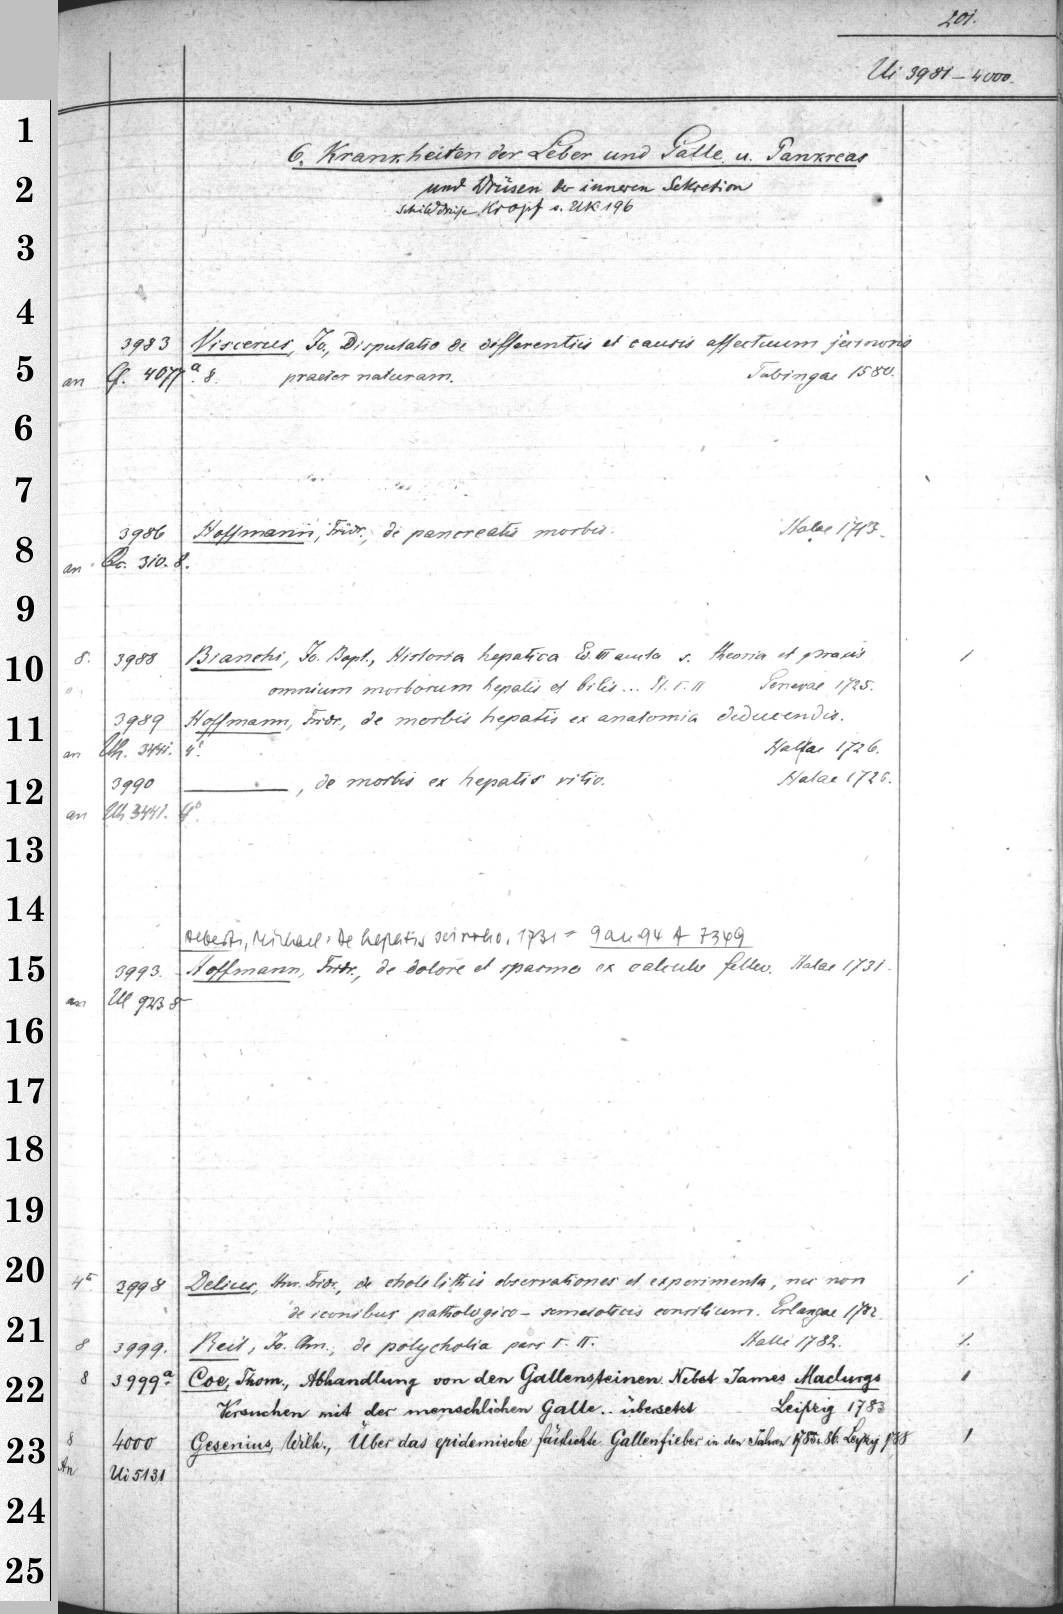 201.
Ui 3981-4000.
6. Krankheiten der Leber und Galle. u. Pankreas
und Drüsen der inneren Sekretion
Schilddrüse Kropf s. UK 196
3983 Viscerus, Jo., Disputatio de differentiis et causis affectuum jecinoris
an 4077 a. 8. praeter naturam. Tubingae 1580.
3986 Hoffmann, Fridr., de pancreatis morbis. Halae 1713.
an 310. 8.
8. 3988 Bianchi, Jo. Bapt., Historia hepatica Ed. III aucta s. theoria et praxis 1
omnium morborum hepatis et bilis... Pt. I. II Genevae 1725.
3989 Hoffmann, Fridr., de morbis hepatis ex anatomia deducendis.
an Uh. 3441. 4°. Hallae 1726.
3990 ———, de morbis ex hepatis vitio. Halae 1726.
an Uh 3441. 4°.
Alberti, Michael: De hepatis scirrho. 1731 = 9 an 94 A 7349
3993. Hoffmann, Fridr., de dolore et spasmo ex calculo felleo. Halae 1731.
an Ul 923 8
4° 3998 Delius, Hnr. Fridr., de cholelithis observationes et experimenta, nec non 1
de iconibus pathologico-semeioticis consilium. Erlangae 1782.
8 3999. Reil, Jo. Chn., de polycholia pars I. II. Halle 1782. 1.
8 3999a. Coe, Thom., Abhandlung von den Gallensteinen. Nebst James Maclurgs 1
Versuchen mit der menschlichen Galle.. übersetzt Leipzig 1783
8 4000 Gesenius, Wilh., Über das epidemische faulichte Gallenfieber in den Jahren 1785 u. 86. Leipzig 1788 1
An Ui 5131